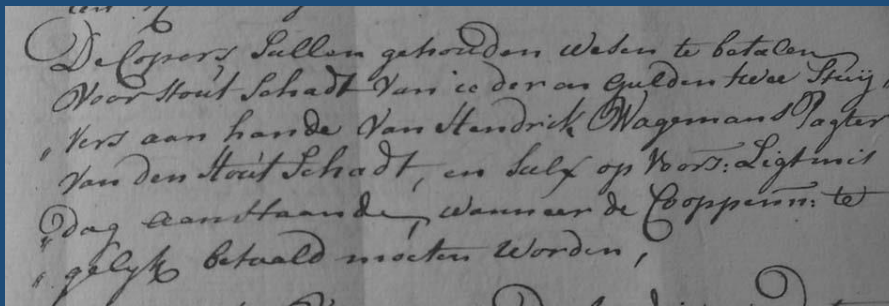 De Copers sullen gehouden wesen te betalen
Voor Hout Schadt van ieder en gulden twee Stuij,,
,,vers aan hande van Hendrick Wagemans Pagter
van den Hout Schadt, en self op voors: Ligtmis
,,dag aanstaande, wanneer de Cooppenn: te
,,gelyk betaald moeten worden,